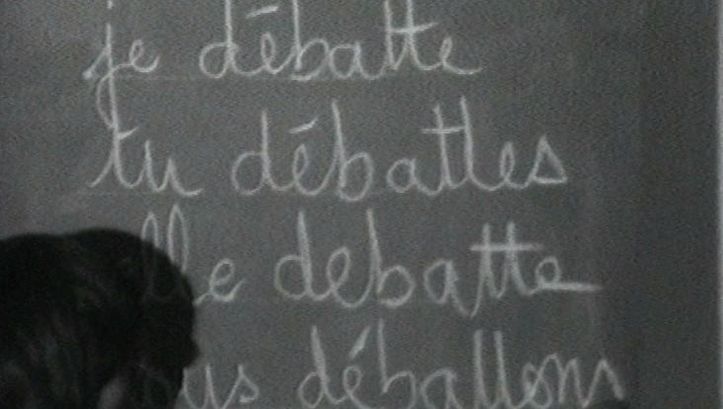 je débatte
tu débattes
elle debatte
ous déballons